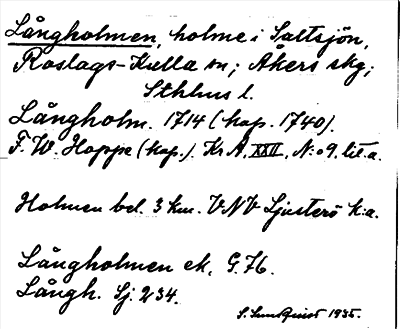 Långholmen, holme i Saltsjön,
Roslags-Kulla sn; Åkers skg;
Sthlms l.
Långholm. 1714 (kop. 1740).
F. W. Hoppe (kop.). Kr. A. XXII, N:o 9. lit. a.
Holmen bel. 3 km. VNV Ljusterö k:a.
Långholmen ek. G. 76.
Långh. Sj. 234.
S. Sundquist 1935.